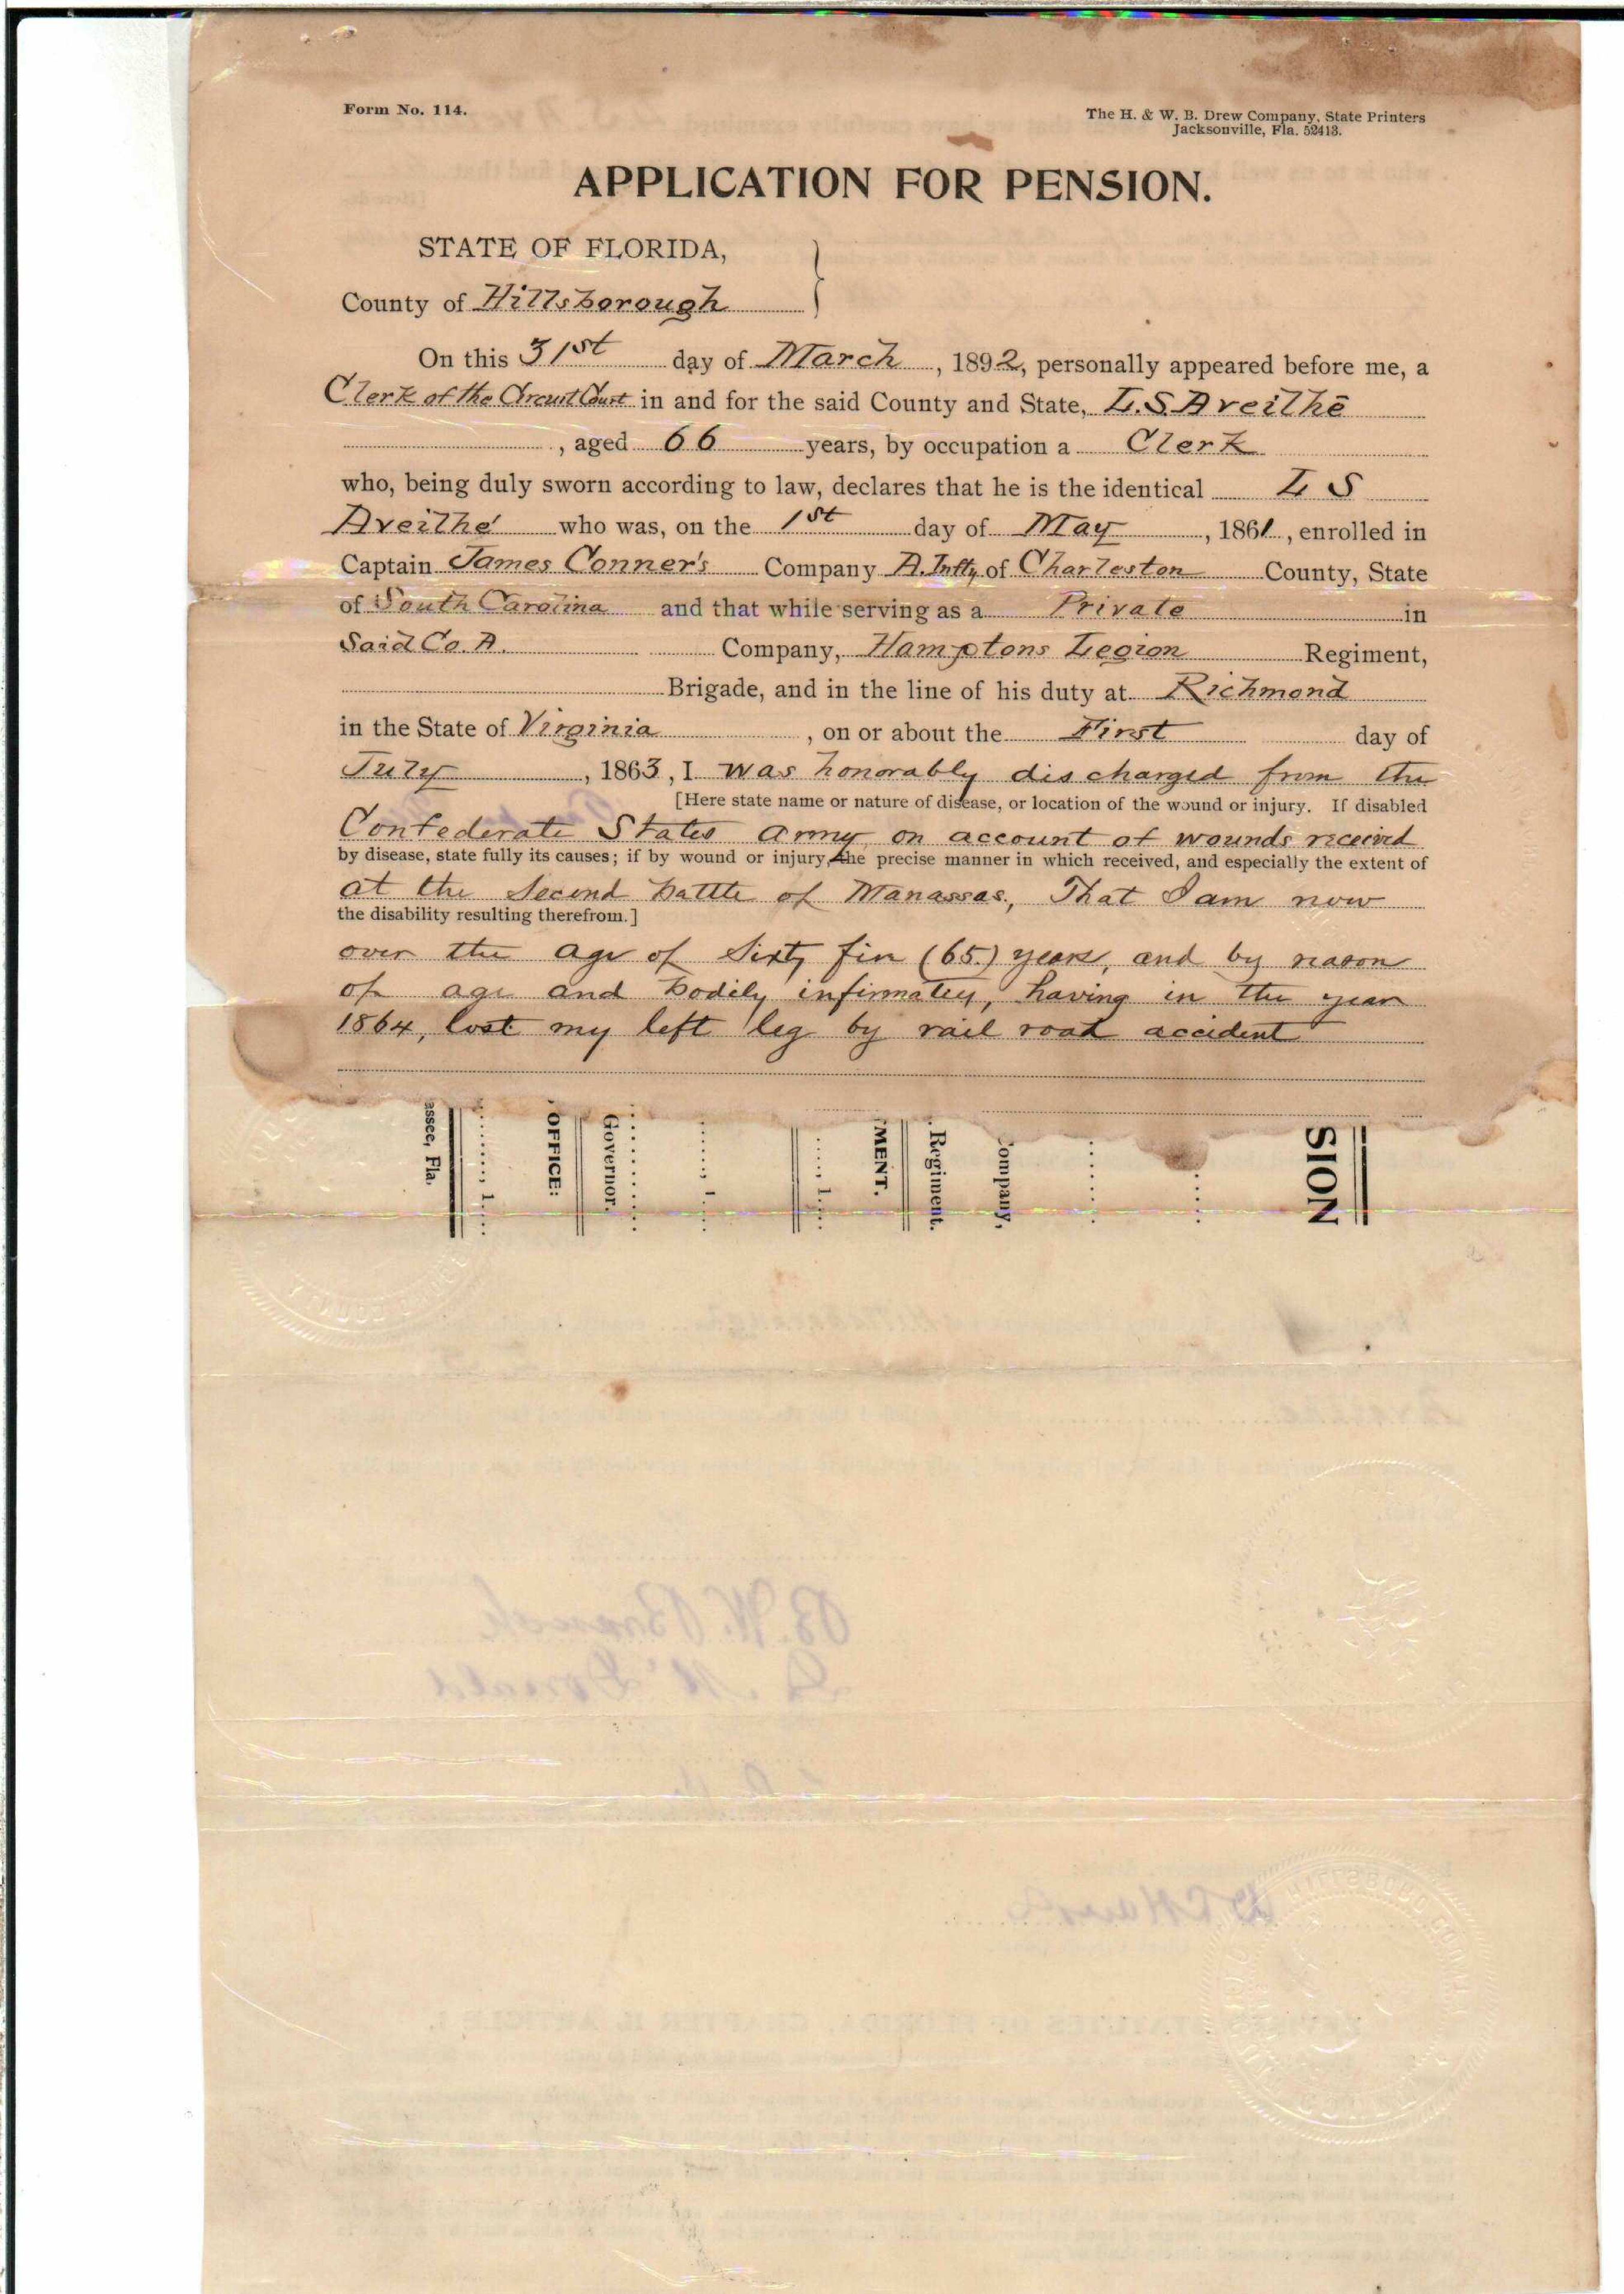 Form No. 114.
The H. & W. B. Drew Company, State Printers
Jacksonville, Fla. 52413.
APPLICATION FOR PENSION.
STATE OF FLORIDA,
County of Hillsborough
On this 31st day of March, 1892, personally appeared before me, a
Clerk of the Circuit Court in and for the said County and State, L.S. Aveilhé
, aged 66 years, by occupation a Clerk
who, being duly sworn according to law, declares that he is the identical L S
Aveilhé who was, on the 1st day of May, 1861, enrolled in
Captain James Conner's Company A. Infty of Charleston County, State
of South Carolina and that while serving as a Private in
Said Co. A. Company, Hamptons Legion Regiment,
Brigade, and in the line of his duty at Richmond
in the State of Virginia, on or about the First day of
July, 1863, I was honorably discharged from the
[Here state name or nature of disease, or location of the wound or injury. If disabled
Confederate States army on account of wounds received
by disease, state fully its causes; if by wound or injury, the precise manner in which received, and especially the extent of
at the Second battle of Manassas, That I am now
the disability resulting therefrom.]
over the age of Sixty five (65.) years, and by reason
of age and bodily infirmatey, having in the year
1864, lost my left leg by rail road accident
assee, Fla.
, 1
OFFICE:
Governor.
, 1
, 1
MENT.
Regiment.
ompany,
SION